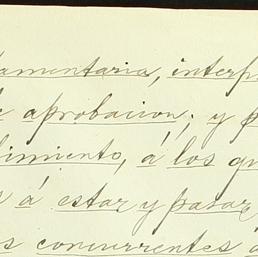 lamentaria, interp
e aprobacion; y p
limiento, á los qu
s á estar y pasar
os concurrentes á